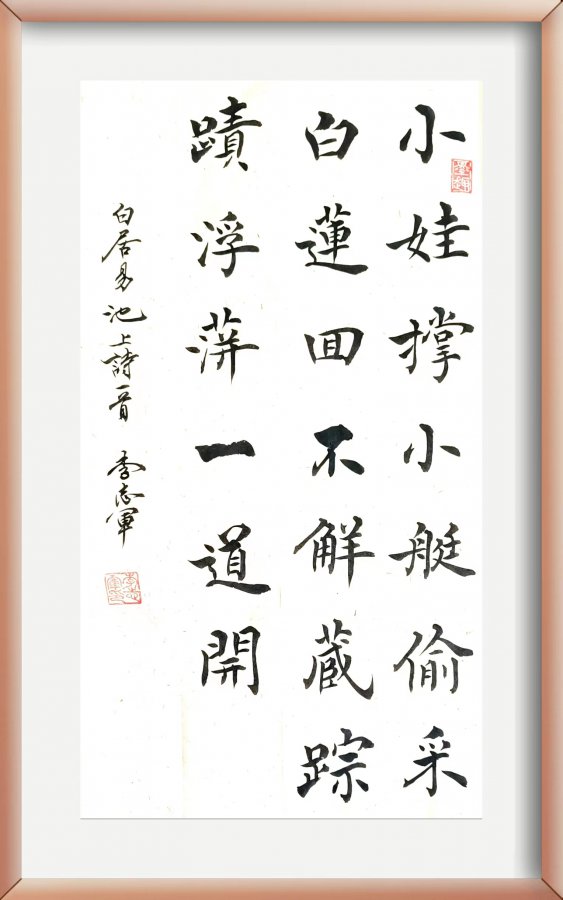 小娃撑小艇偷采
白蓮回不解藏踪
蹟浮萍一道開
白居易池上詩一首 李志軍